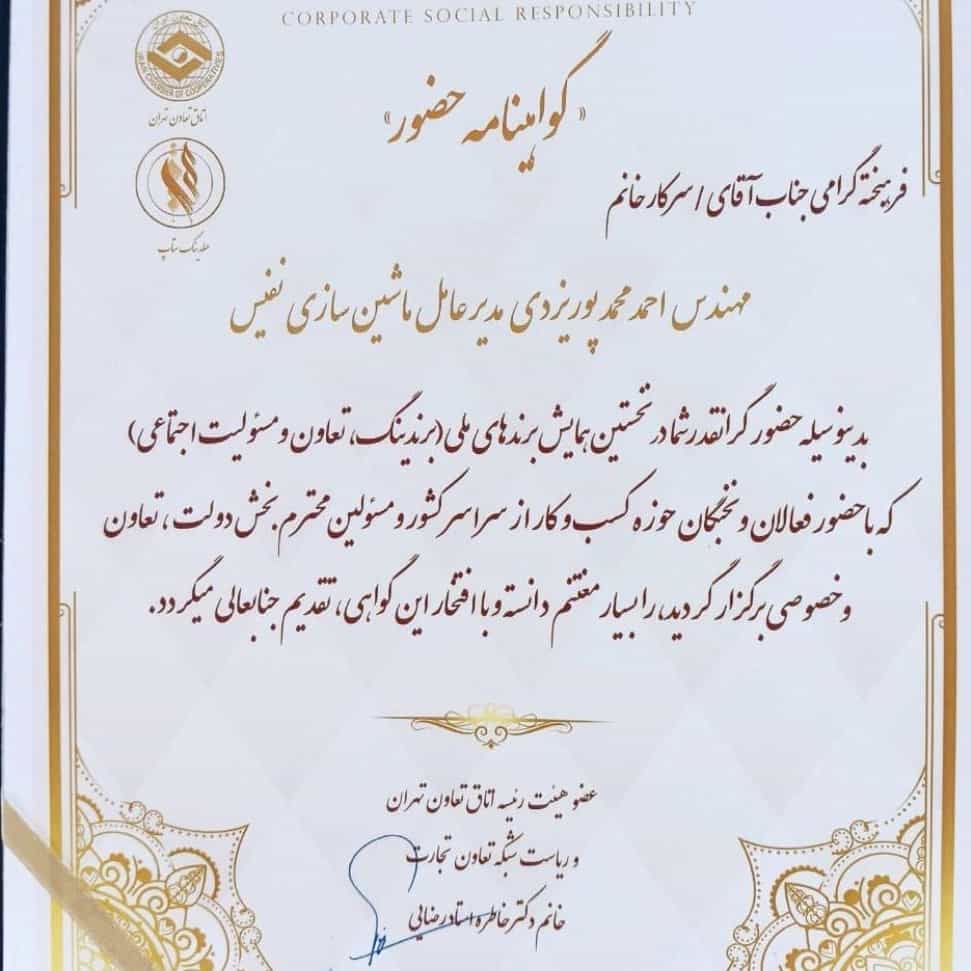 CORPORATE SOCIAL RESPONSIBILITY
IRAN CHAMBER OF COOPERATIVES
اتاق تعاون تهران
« گواهینامه حضور »
فرهیخته گرامی جناب آقای / سرکار خانم
مهندس احمد محمد پور یزدی مدیرعامل ماشین سازی نفیس
بدینوسیله حضور گرانقدر شما در نخستین همایش برندهای ملی (برندینگ، تعاون و مسئولیت اجتماعی)
که با حضور فعالان و نخبگان حوزه کسب و کار از سراسر کشور و مسئولین محترم بخش دولت، تعاون
و خصوصی برگزار گردید، را بسیار مغتنم دانسته و با افتخار این گواهی، تقدیم جنابعالی میگردد.
عضو هیئت رئیسه اتاق تعاون تهران
و ریاست شبکه تعاون تجارت
خانم دکتر خاطره استادرضایی